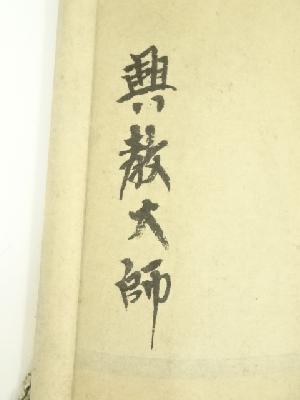 興教大師